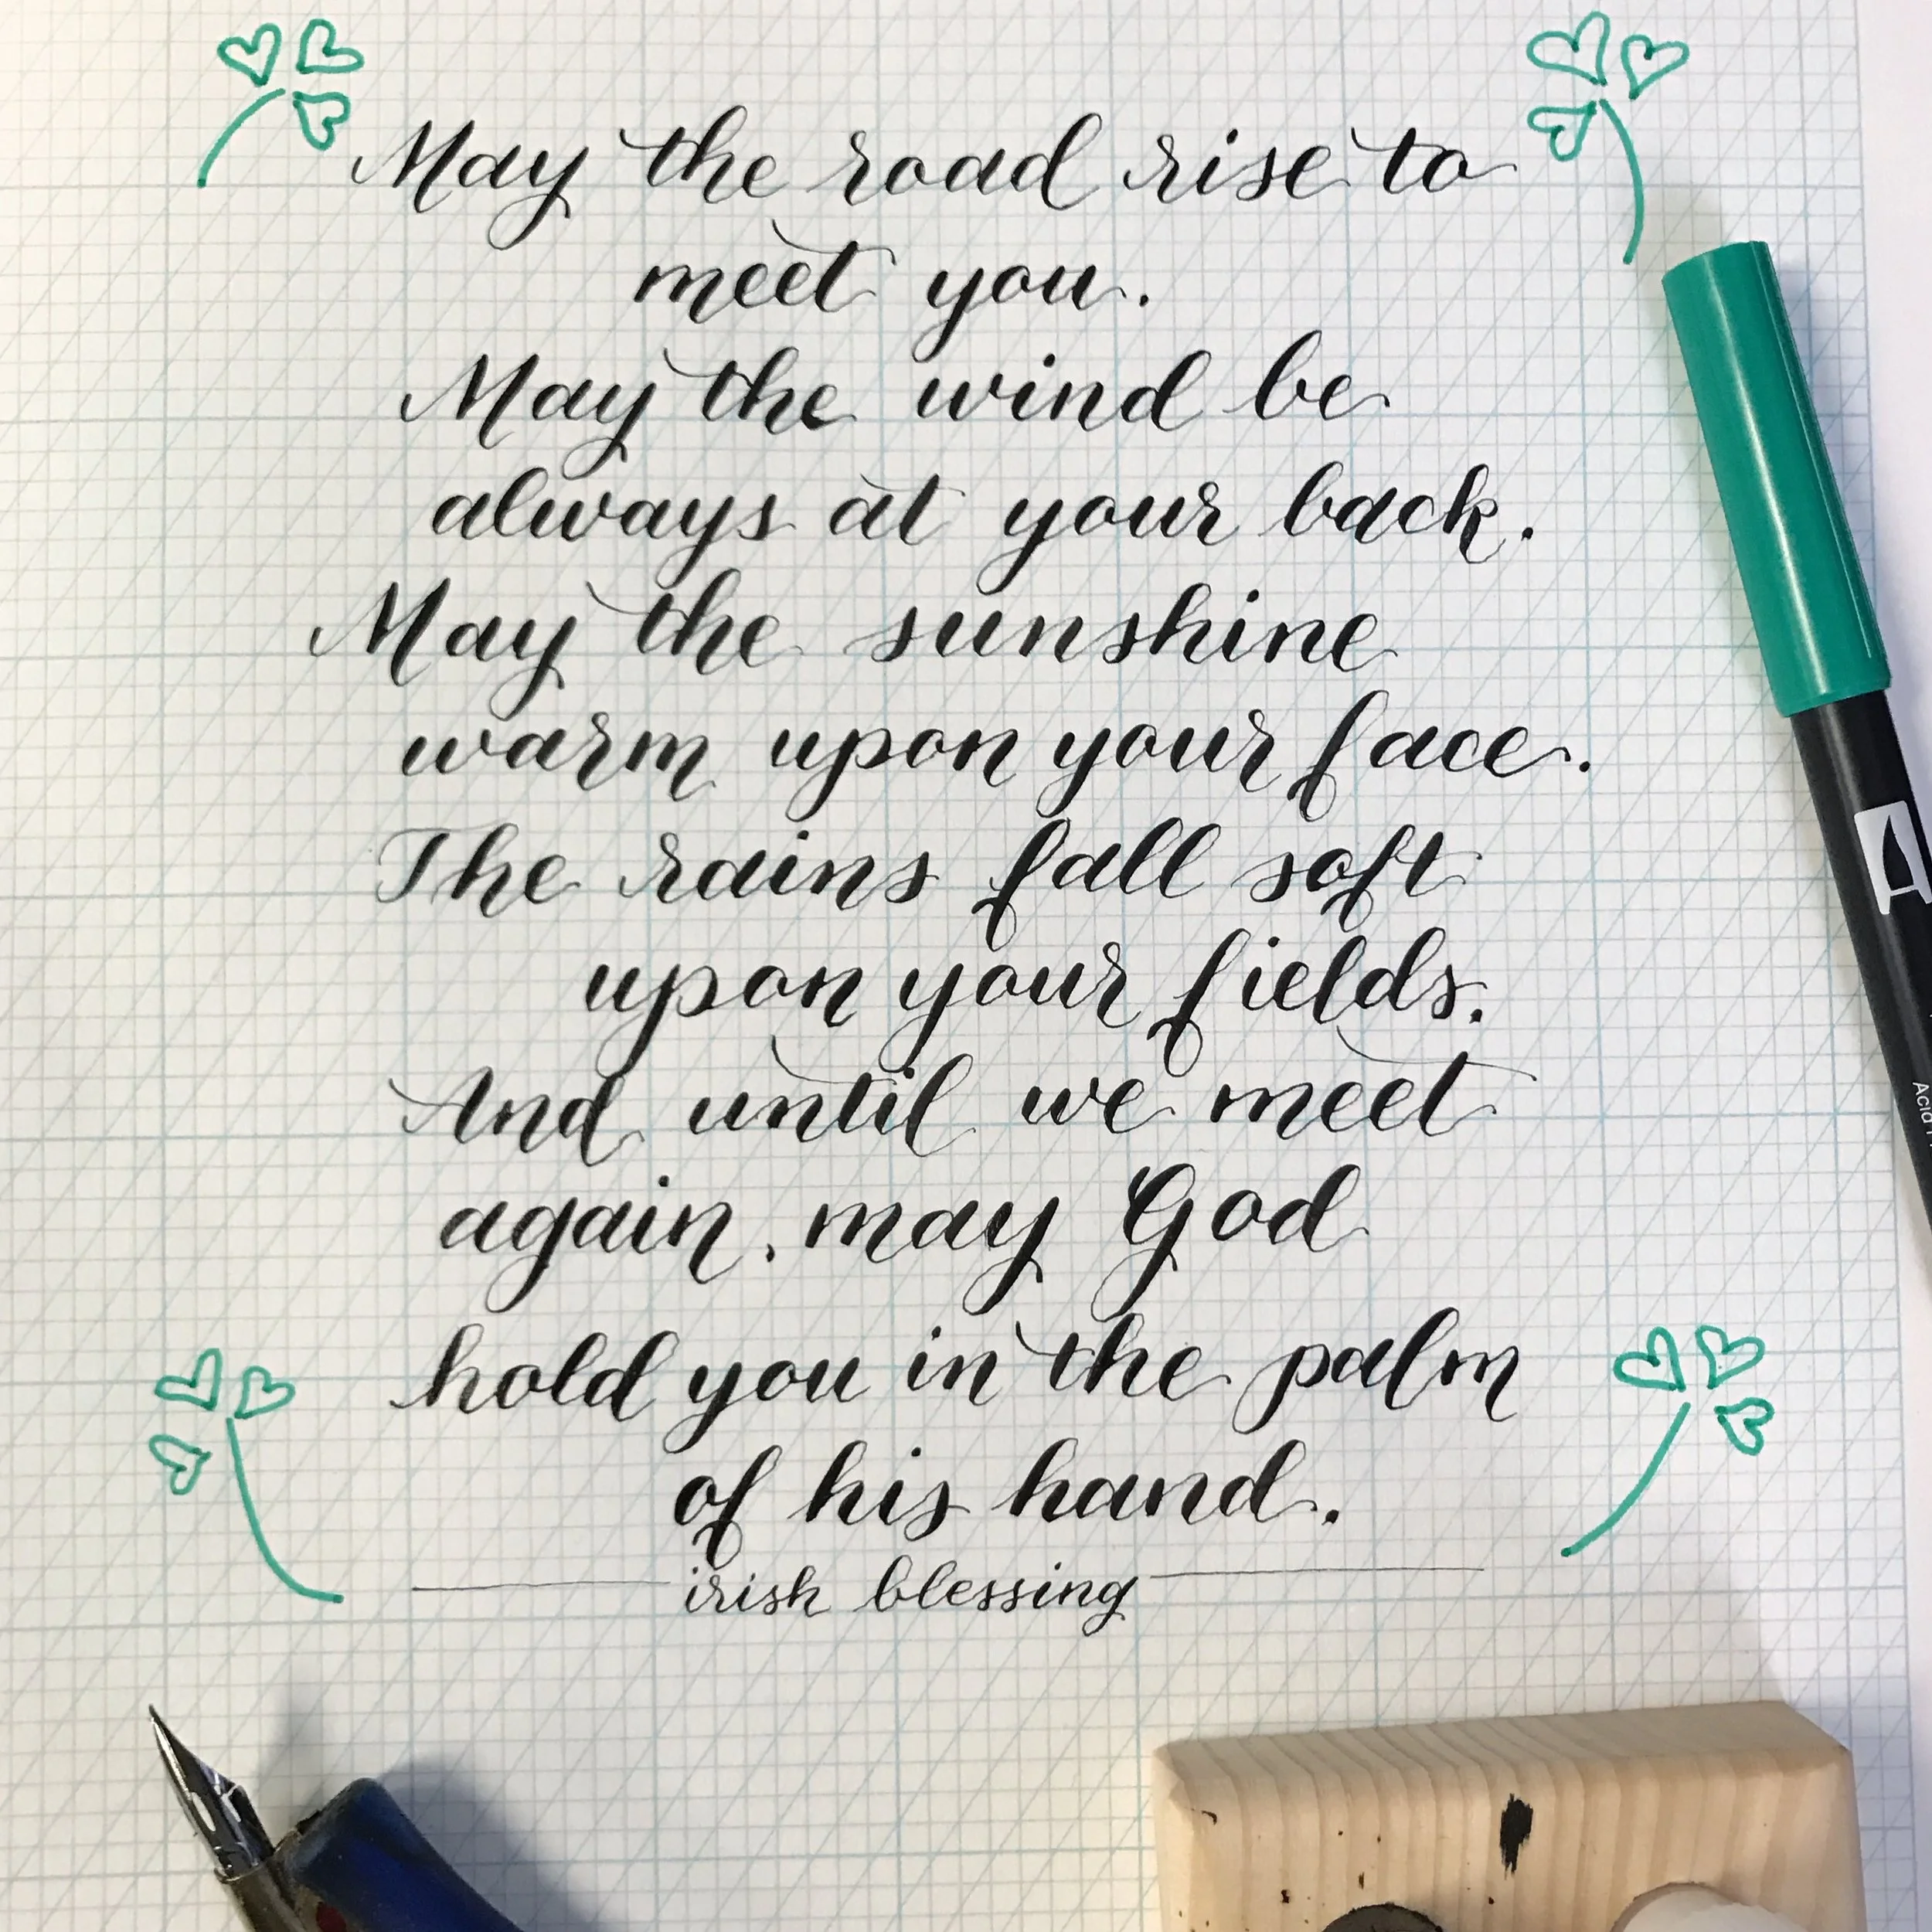 May the road rise to
meet you.
May the wind be
always at your back.
May the sunshine
warm upon your face.
The rains fall soft
upon your fields.
And until we meet
again, may God
hold you in the palm
of his hand.
irish blessing